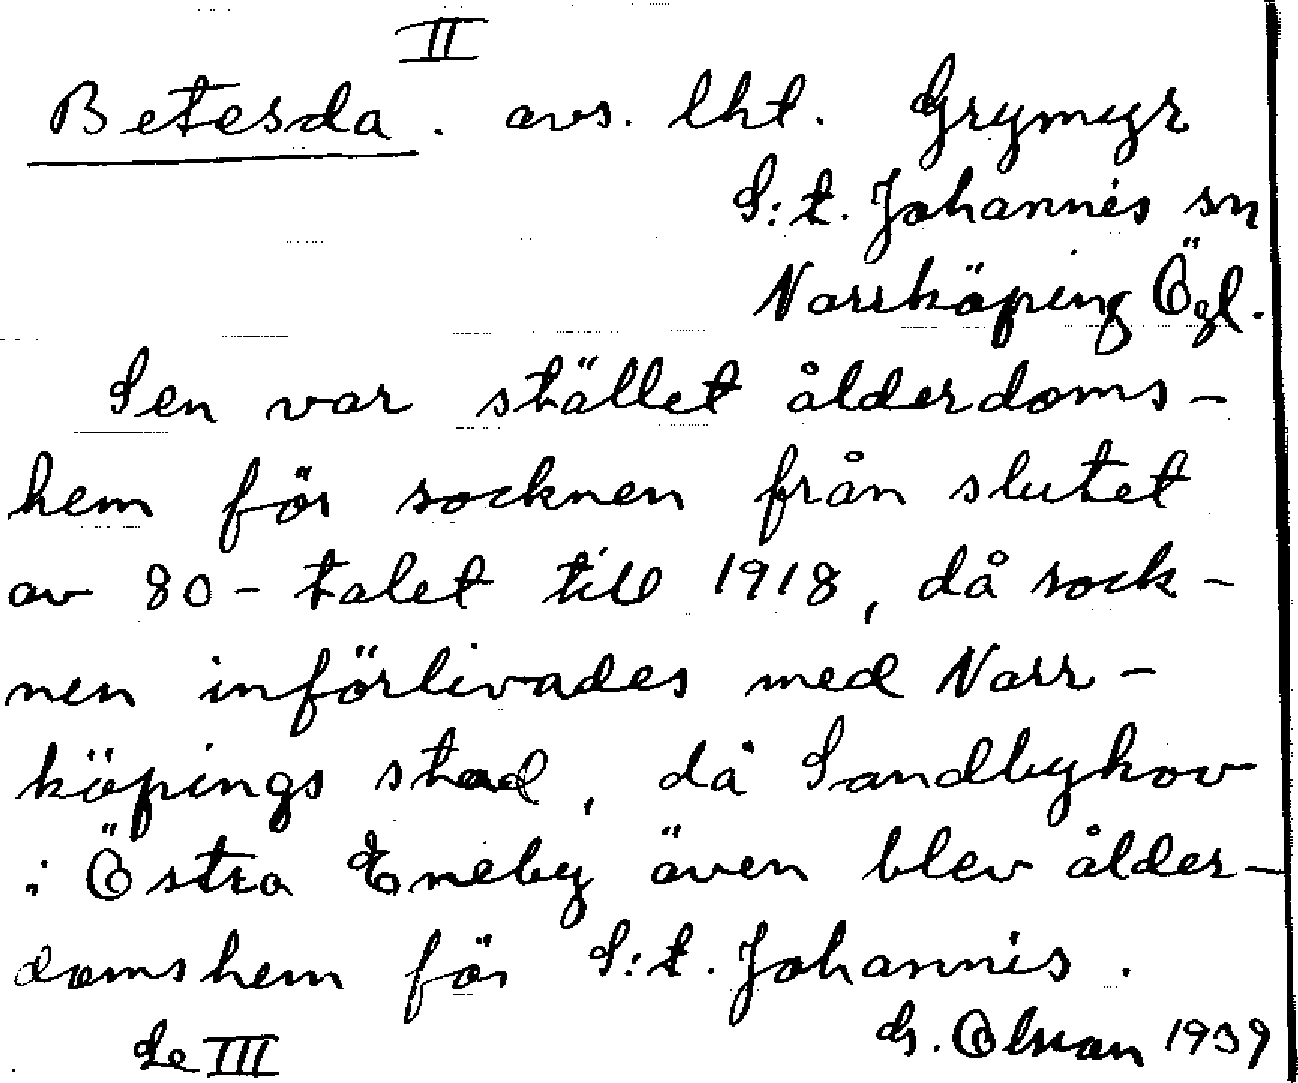 II
Betesda. avs. lht. Grymyr
S:t. Johannis sn
Norrköping Ögl.
Sen var stället ålderdoms-
hem för socknen från slutet
av 80-talet till 1918, då sock-
nen införlivades med Norr-
köpings stad, då Sandbyhov
i Östra Eneby även blev ålder-
domshem för S:t. Johannis.
Se III G. Olson 1939